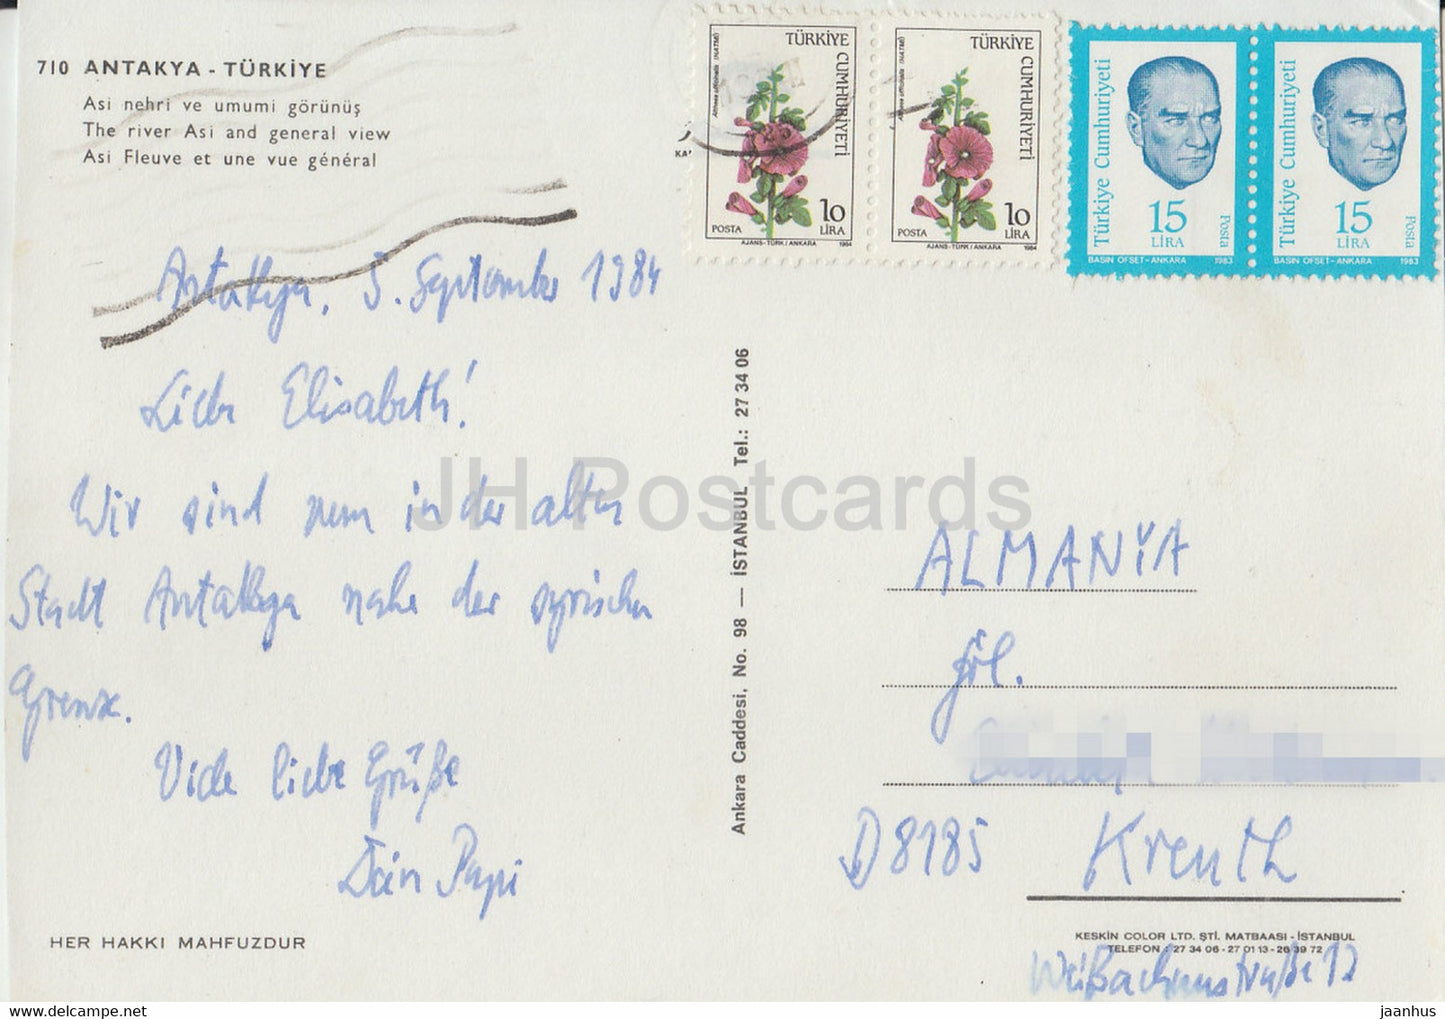 710 ANTAKYA - TÜRKİYE
Asi nehri ve umumi görünüş
The river Asi and general view
Asi Fleuve et une vue général
Antakya, 5. September 1984
Liebe Elisabeth!
Wir sind nun in der alten
Stadt Antakya nahe der syrischen
Grenze.
Viele liebe Grüße
Dein Papi
HER HAKKI MAHFUZDUR
Ankara Caddesi, No. 98 — İSTANBUL Tel.: 27 34 06
TÜRKİYE CUMHURİYETİ
Althaea officinalis (HATMİ)
10 LİRA
POSTA
AJANS-TÜRK/ANKARA 1984
TÜRKİYE CUMHURİYETİ
Althaea officinalis (HATMİ)
10 LİRA
POSTA
AJANS-TÜRK/ANKARA 1984
Türkiye Cumhuriyeti
15 LİRA
Posta
BASIN OFSET-ANKARA 1983
Türkiye Cumhuriyeti
15 LİRA
Posta
BASIN OFSET-ANKARA 1983
ALMANİA
Frl.
D 8185 Kreuth
KESKİN COLOR LTD. ŞTİ. MATBAASI - İSTANBUL
TELEFON : 27 34 06 - 27 01 13 - 26 39 72
Weißachaustraße 12
JH Postcards
www.jhpostcards.com
jaanhus